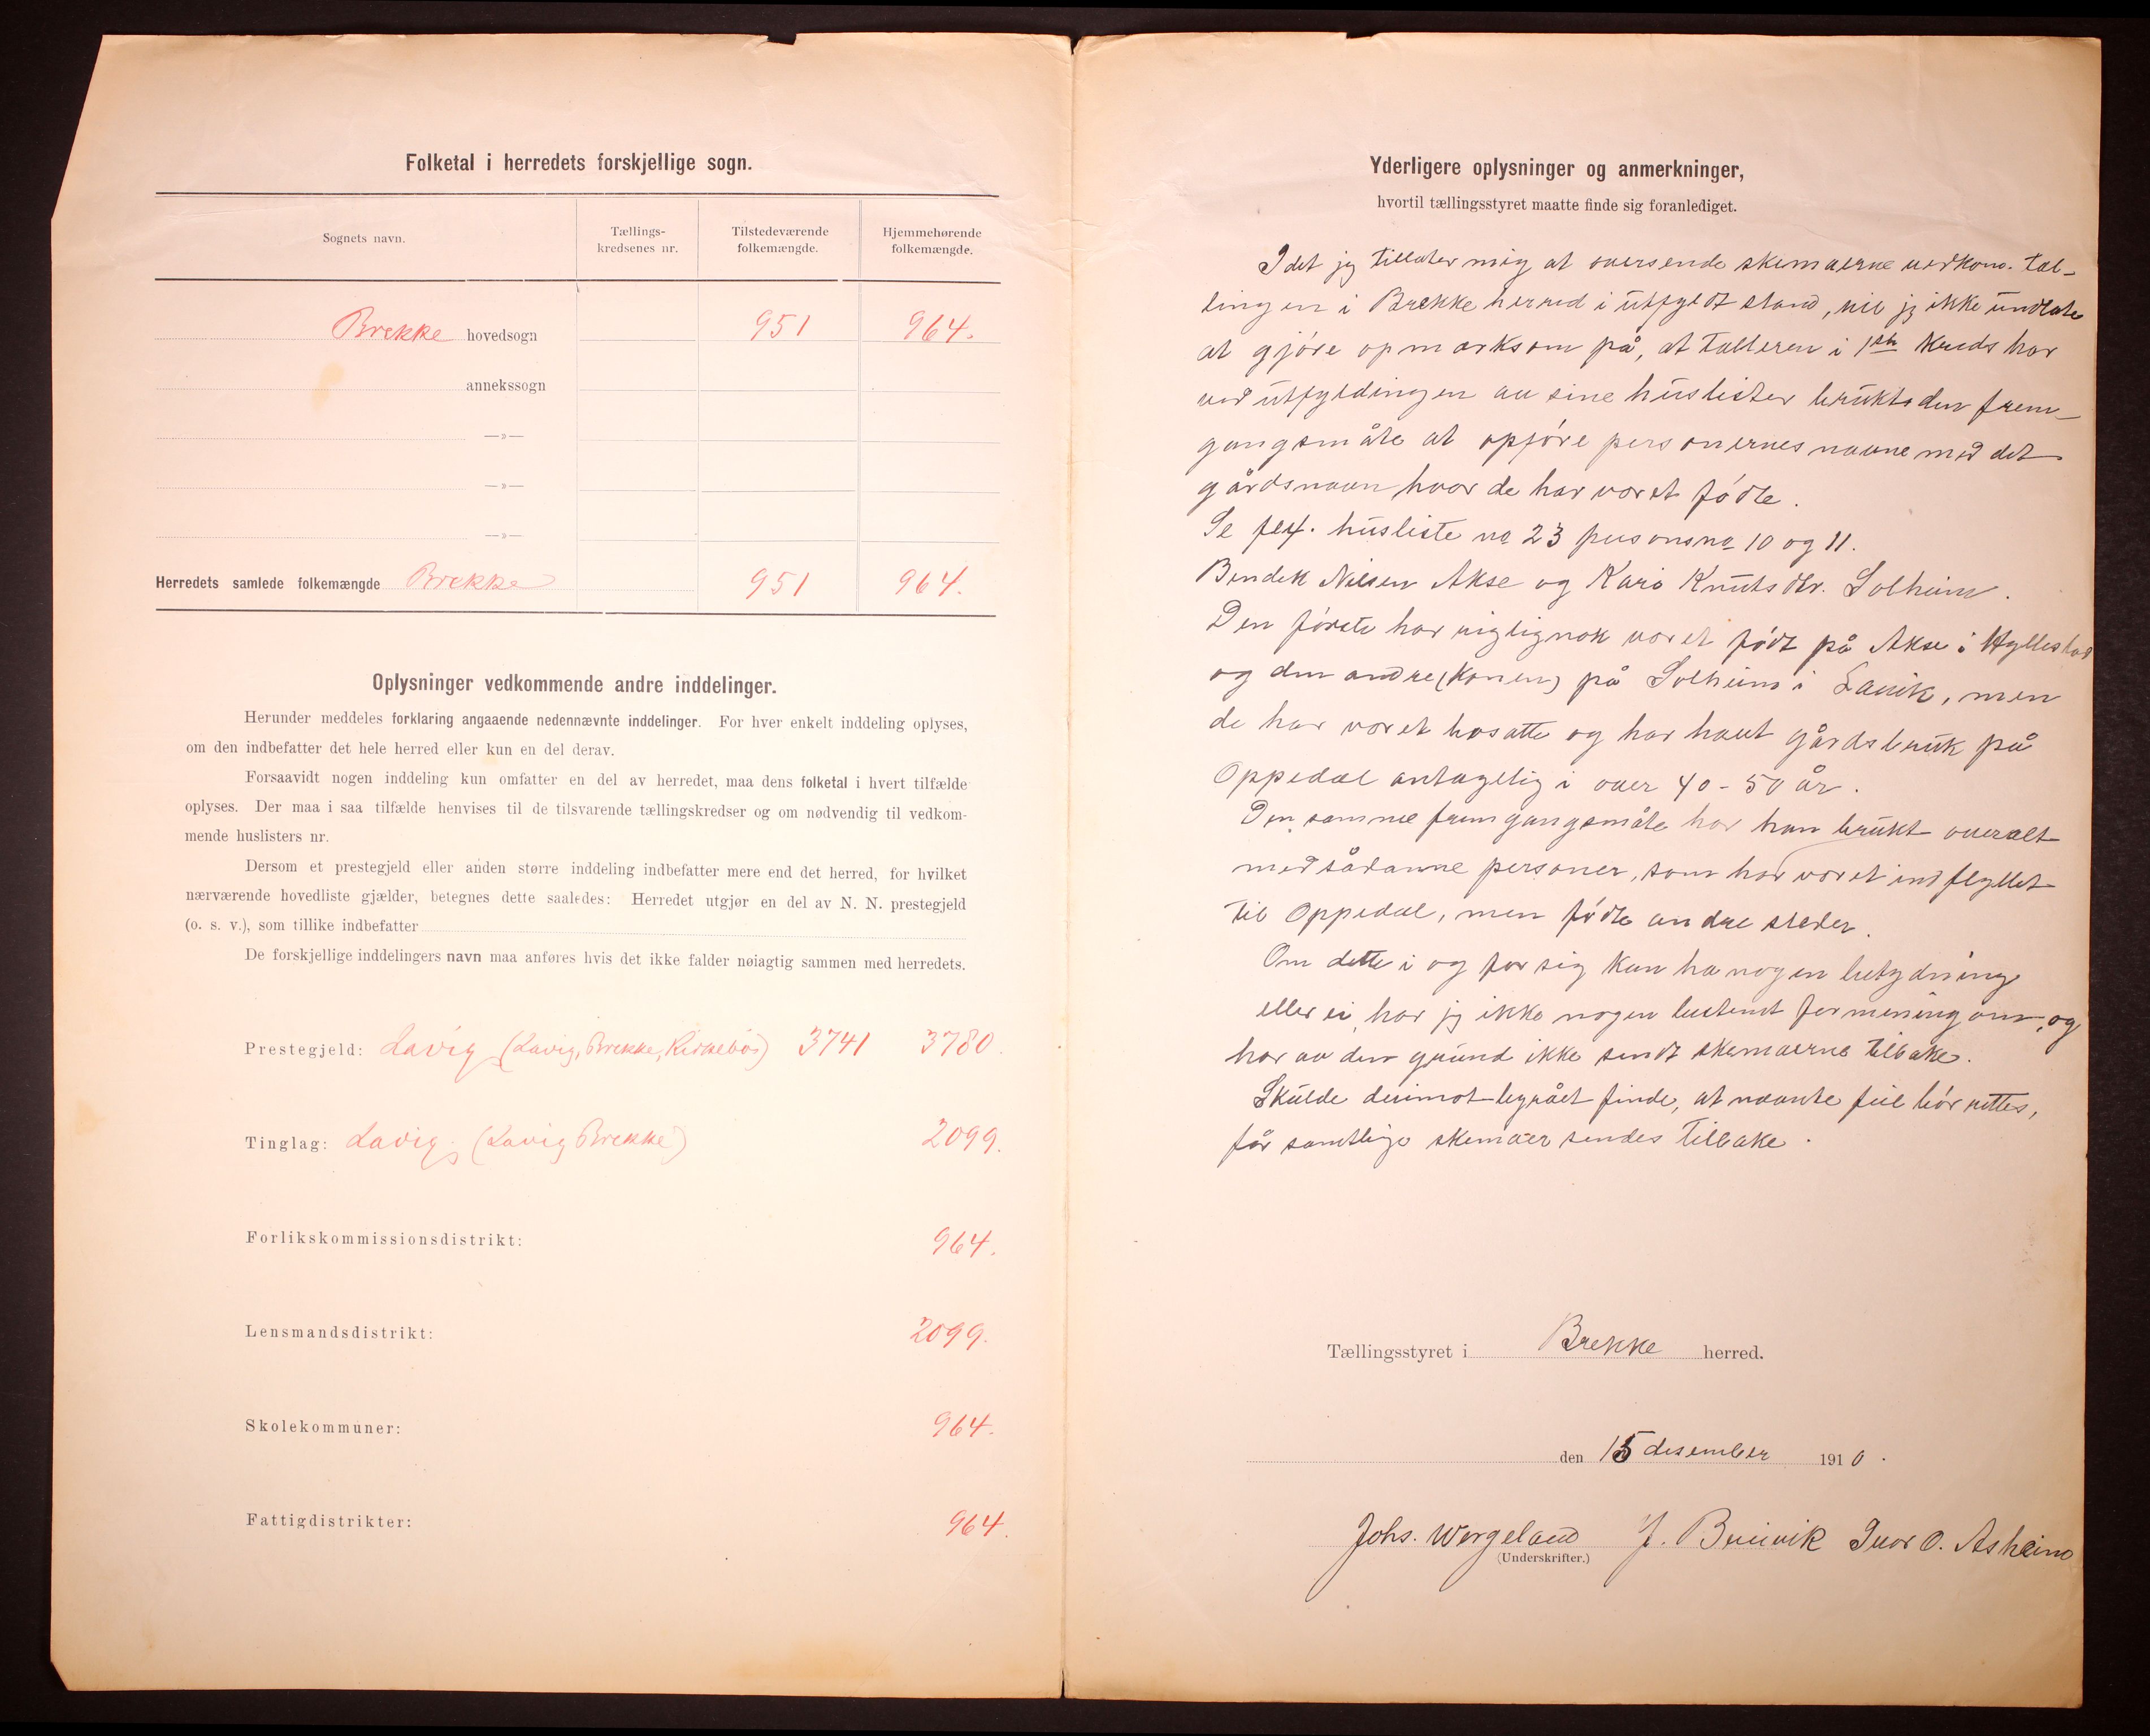 Folketal i herredets forskjellige sogn.
Sognets navn.
Tællings-
kredsenes nr.
Tilstedeværende
folkemængde.
Hjemmehørende
folkemængde.
Brekke hovedsogn 951 964.
annekssogn
—»—
—»—
—»—
Herredets samlede folkemængde Brekke 951 964.
Oplysninger vedkommende andre inddelinger.
Herunder meddeles forklaring angaaende nedennævnte inddelinger. For hver enkelt inddeling oplyses,
om den indbefatter det hele herred eller kun en del derav.
Forsaavidt nogen inddeling kun omfatter en del av herredet, maa dens folketal i hvert tilfælde
oplyses. Der maa i saa tilfælde henvises til de tilsvarende tællingskredser og om nødvendig til vedkom-
mende huslisters nr.
Dersom et prestegjeld eller anden større inddeling indbefatter mere end det herred, for hvilket
nærværende hovedliste gjælder, betegnes dette saaledes: Herredet utgjør en del av N. N. prestegjeld
(o. s. v.), som tillike indbefatter
De forskjellige inddelingers navn maa anføres hvis det ikke falder nøiagtig sammen med herredets.
Prestegjeld: Lavig (Lavig, Brekke, Kirkebös) 3741 3780.
Tinglag: Lavig. (Lavig Brekke) 2099.
Forlikskommissionsdistrikt: 964.
Lensmandsdistrikt: 2099.
Skolekommuner: 964.
Fattigdistrikter: 964.
Yderligere oplysninger og anmerkninger,
hvortil tællingsstyret maatte finde sig foranlediget.
Idet jeg tillater mig at oversende skemaerne vedkom. tæl-
lingen i Brekke herred i utfyldt stand, vil jeg ikke undlate
at gjöre opmerksom på, at tælleren i 1ste kreds har
ved utfyldingen av sine huslister brukt den frem-
gangsmåte at opföre personernes navne med det
gårdsnavn hvor de har været födte.
Se f.ex. husliste no 23 personsno 10 og 11.
Bendik Nilsen Akse og Kari Knutsdtr. Solheim.
Den förste har rigtignok været födt på Akse i Hyllestad
og den andre (konen) på Solheim i Lavik, men
de har været bosatte og har havt gårdsbruk på
Oppedal antagelig i over 40-50 år.
Den samme fremgangsmåte har han brukt overalt
med sådanne personer, som har været indflyttet
til Oppedal, men födte andre steder.
Om dette i og for sig kan ha nogen betydning
eller ei, har jeg ikke nogen bestemt formening om, og
har av den grund ikke sendt skemaerne tilbake.
Skulde derimot byrået finde, at nævnte feil bör rettes,
får samtlige skemaer sendes tilbake.
Tællingsstyret i Brekke herred.
den 15 desember 1910.
Johs. Wergeland J. Breivik Ivar O. Asheim
(Underskrifter.)